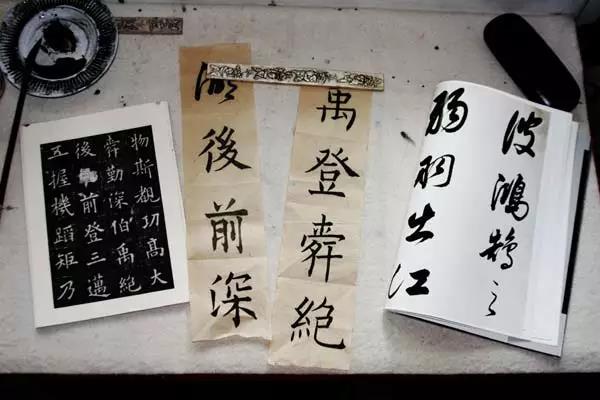 物斯觀功高大
舜勤深伯禹絕
後前登三邁
五握機蹈矩乃
禹登舜絕
後前深
波鴻鵠之
弱羽出江